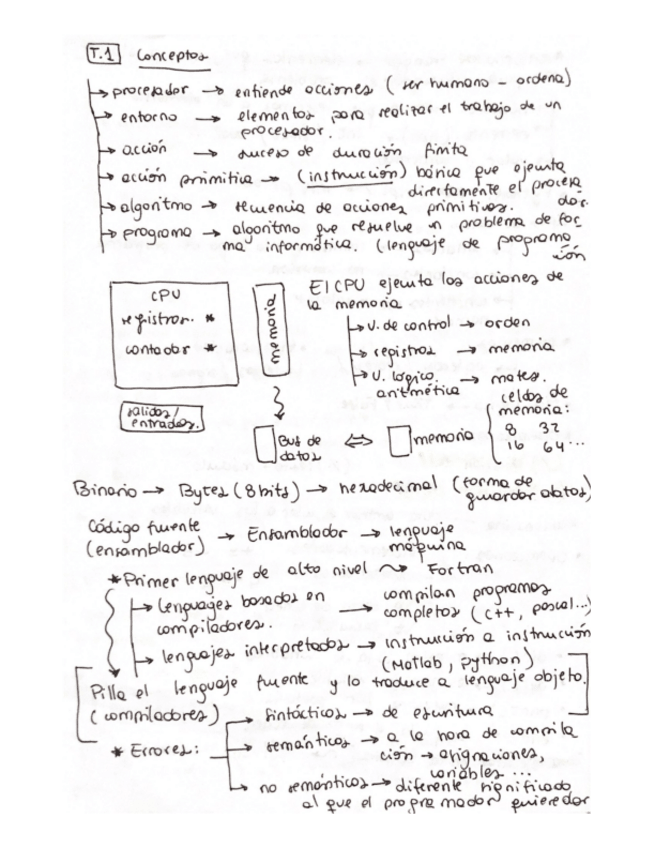 T.1 Conceptos
→ procesador → entiende acciones (ser humano - ordena)
→ entorno → elementos para realizar el trabajo de un
procesador.
→ acción → suceso de duración finita
→ acción primitiva → (instrucción) básica que ejecuta
directamente el procesa
dor.
→ algoritmo → secuencia de acciones primitivas.
→ programa → algoritmo que resuelve un problema de for_
ma informática. (lenguaje de programa_
ción
CPU
registros. *
contador *
memoria
salidas/
entradas.
El CPU ejecuta las acciones de
la memoria
→ U. de control → orden
→ registros → memoria
→ U. lógico → mates.
aritmética
Bus de
datos
⇔ memoria
celdas de
memoria:
8 32
16 64...
Binario → Bytes (8 bits) → hexadecimal (forma de
guardar datos)
Código fuente
(ensamblador) → Ensamblador → lenguaje
máquina
* Primer lenguaje de alto nivel ⤳ Fortran
→ lenguajes basados en
compiladores. → compilan programas
completos (C++, pascal...)
→ lenguajes interpretados → instrucción a instrucción
(Matlab, python)
Pilla el lenguaje fuente y lo traduce a lenguaje objeto.
(compiladores)
* Errores:
→ sintácticos → de escritura
→ semánticos → a la hora de compila
ción → asignaciones,
variables ...
→ no semánticos → diferente significado
al que el programador quiere dar